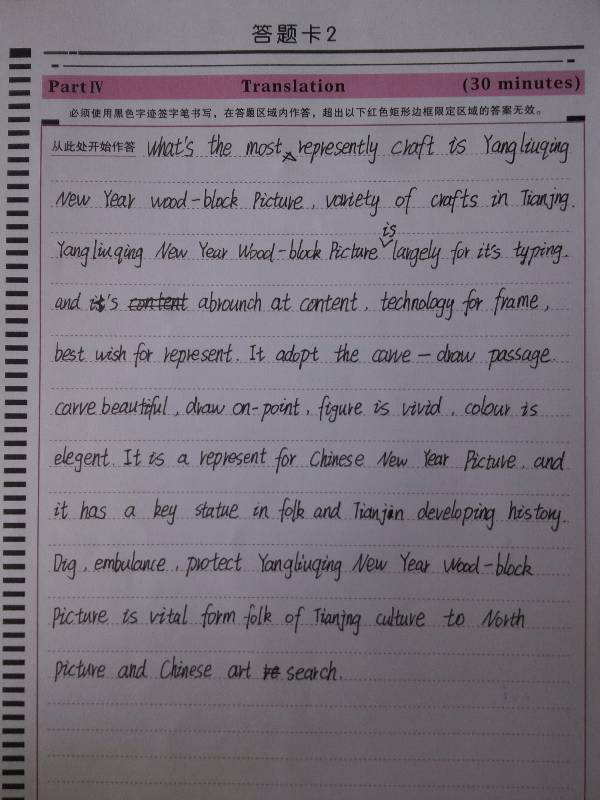 答题卡2
Part IV Translation (30 minutes)
必须使用黑色字迹签字笔书写，在答题区域内作答，超出以下红色矩形边框限定区域的答案无效。
从此处开始作答 what's the most represently craft is Yangliuqing
New Year wood-block Picture, variety of crafts in Tianjng.
Yangliuqing New Year Wood-block Picture is largely for it's typing.
and it's content abrounch at content, technology for frame,
best wish for represent. It adopt the carve-draw passage.
carve beautiful, draw on-point, figure is vivid, colour is
elegent. It is a represent for Chinese New Year Picture, and
it has a key statue in folk and Tianjin developing history.
Dig, embulance, protect Yangliuqing New Year Wood-block
Picture is vital form folk of Tianjng culture to North
picture and Chinese art re search.